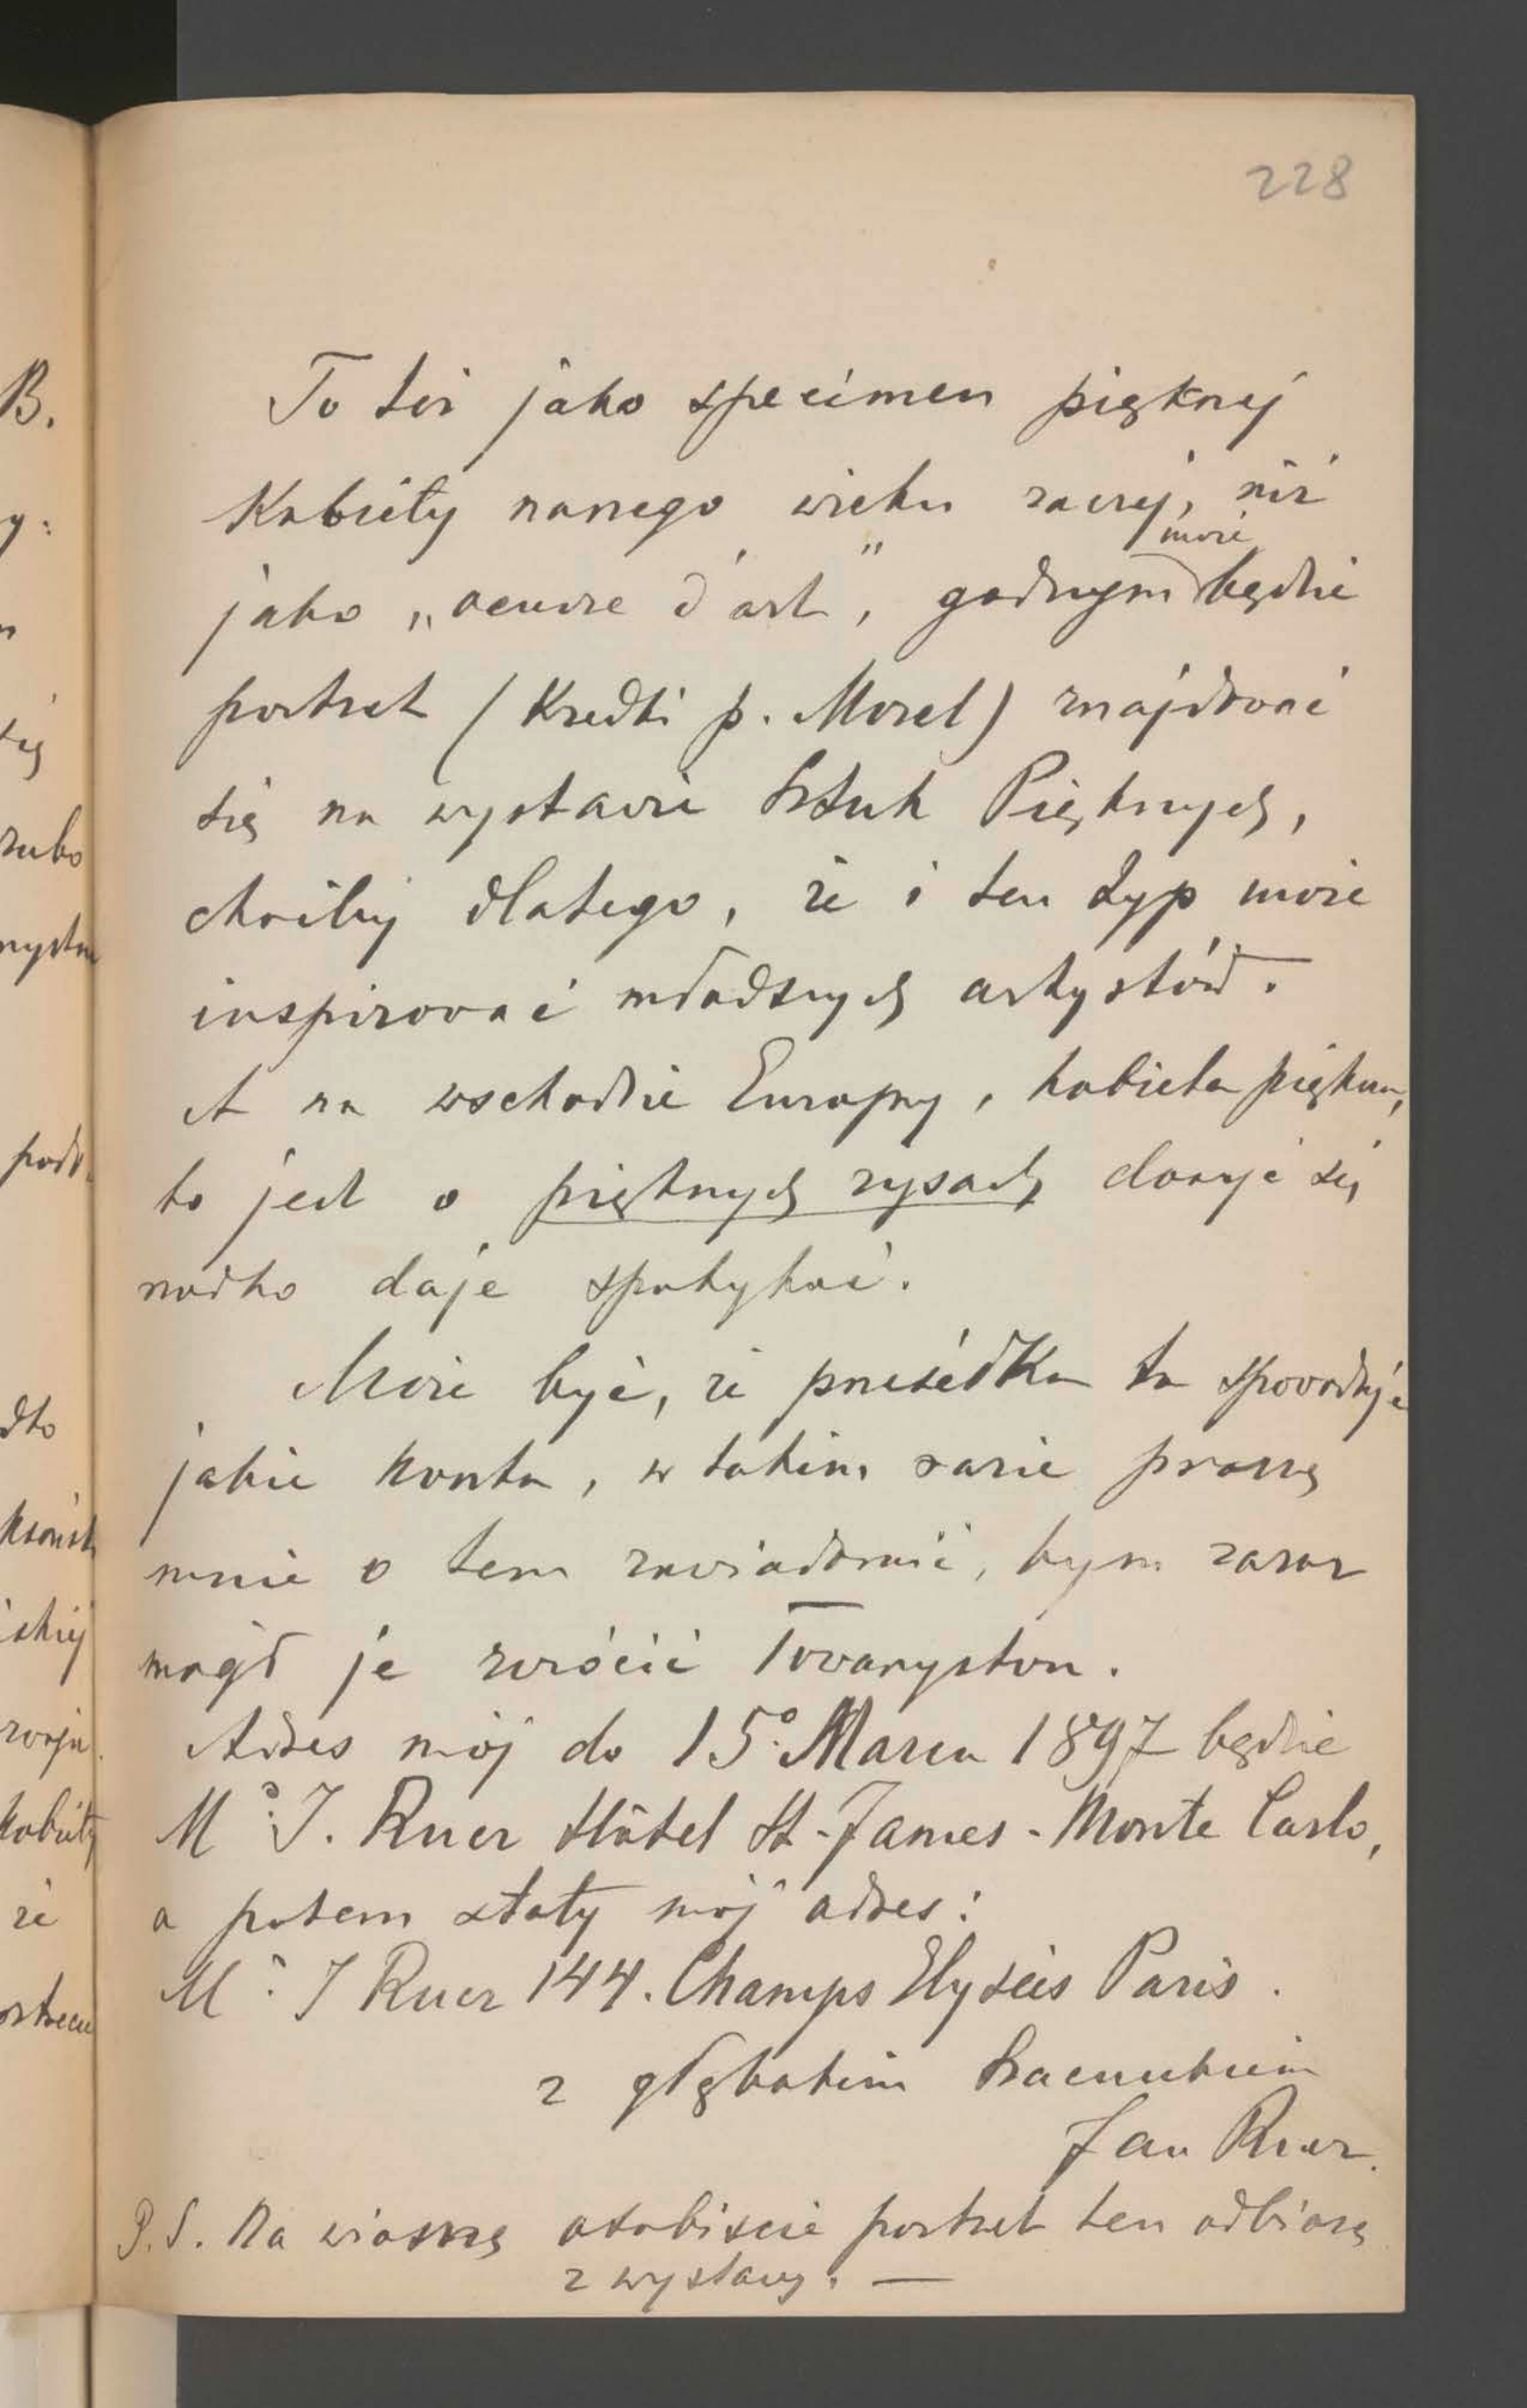 228
To też jako specimen pięknej
Kobiéty naszego wieku raczéj, niż
może
jako „oeuvre d'art", godnym będzie
portret (Kredki p. Morel) znajdować
się na wystawie Sztuk Pięknych,
chociby dlatego, że i ten typ może
inspirować młodszych artystów.
A na wschodzie Europy, kobieta piękna,
to jest o pięknych rysach dosyć się
rzadko daje spotykać.
Może być, że przesédka ta spowoduje
jakie koszta, w takim razie proszę
mnie o tem zawiadomić, bym zaraz
mógł je zwrócić Towarzystwu.
Adres mój do 15º Marca 1897 będzie
Mr J. Ruer Hôtel St-James - Monte Carlo,
a potem stały mój adres:
Mr J Ruer 144. Champs Elyseés Paris.
z głębokim szacunkiem
Jan Ruer.
P.S. Na wiosnę osobiscie portret ten odbiorę
z wystawy. —
B.
y:
się
rubo
podo
dto
zwoju
kobiéty
że